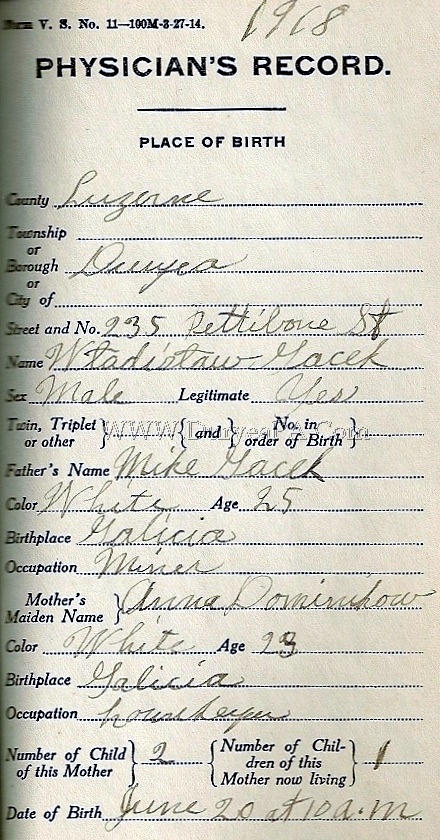 1918
Form V. S. No. 11—100M-3-27-14.
PHYSICIAN'S RECORD.
PLACE OF BIRTH
County Luzerne
Township
or
Borough Duryea
or
City of
Street and No. 235 Pettibone St
Name Wladistaw Gacek
Sex Male Legitimate Yes
Twin, Triplet or other } { and } No. in order of Birth }
WWW.DuryeaPA.Com
Father's Name Mike Gacek
Color White Age 25
Birthplace Galicia
Occupation Miner
Mother's Maiden Name } Anna Dominikow
Color White Age 23
Birthplace Galicia
Occupation housekeeper
Number of Child of this Mother } 2 { Number of Chil-dren of this Mother now living } 1
Date of Birth June 20 at 10 a.m